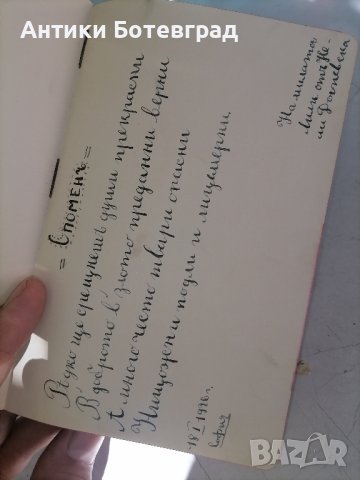 Антики Ботевград
= Споменъ =
Рѣдко ще срещнешъ души прекрасни
В доброто в злото преданни верни
А много често твари опасни
Нищожени подли и лицемерни.
18 I 1946 г.
София
На милата
Лили отъ Не-
ли
bazar